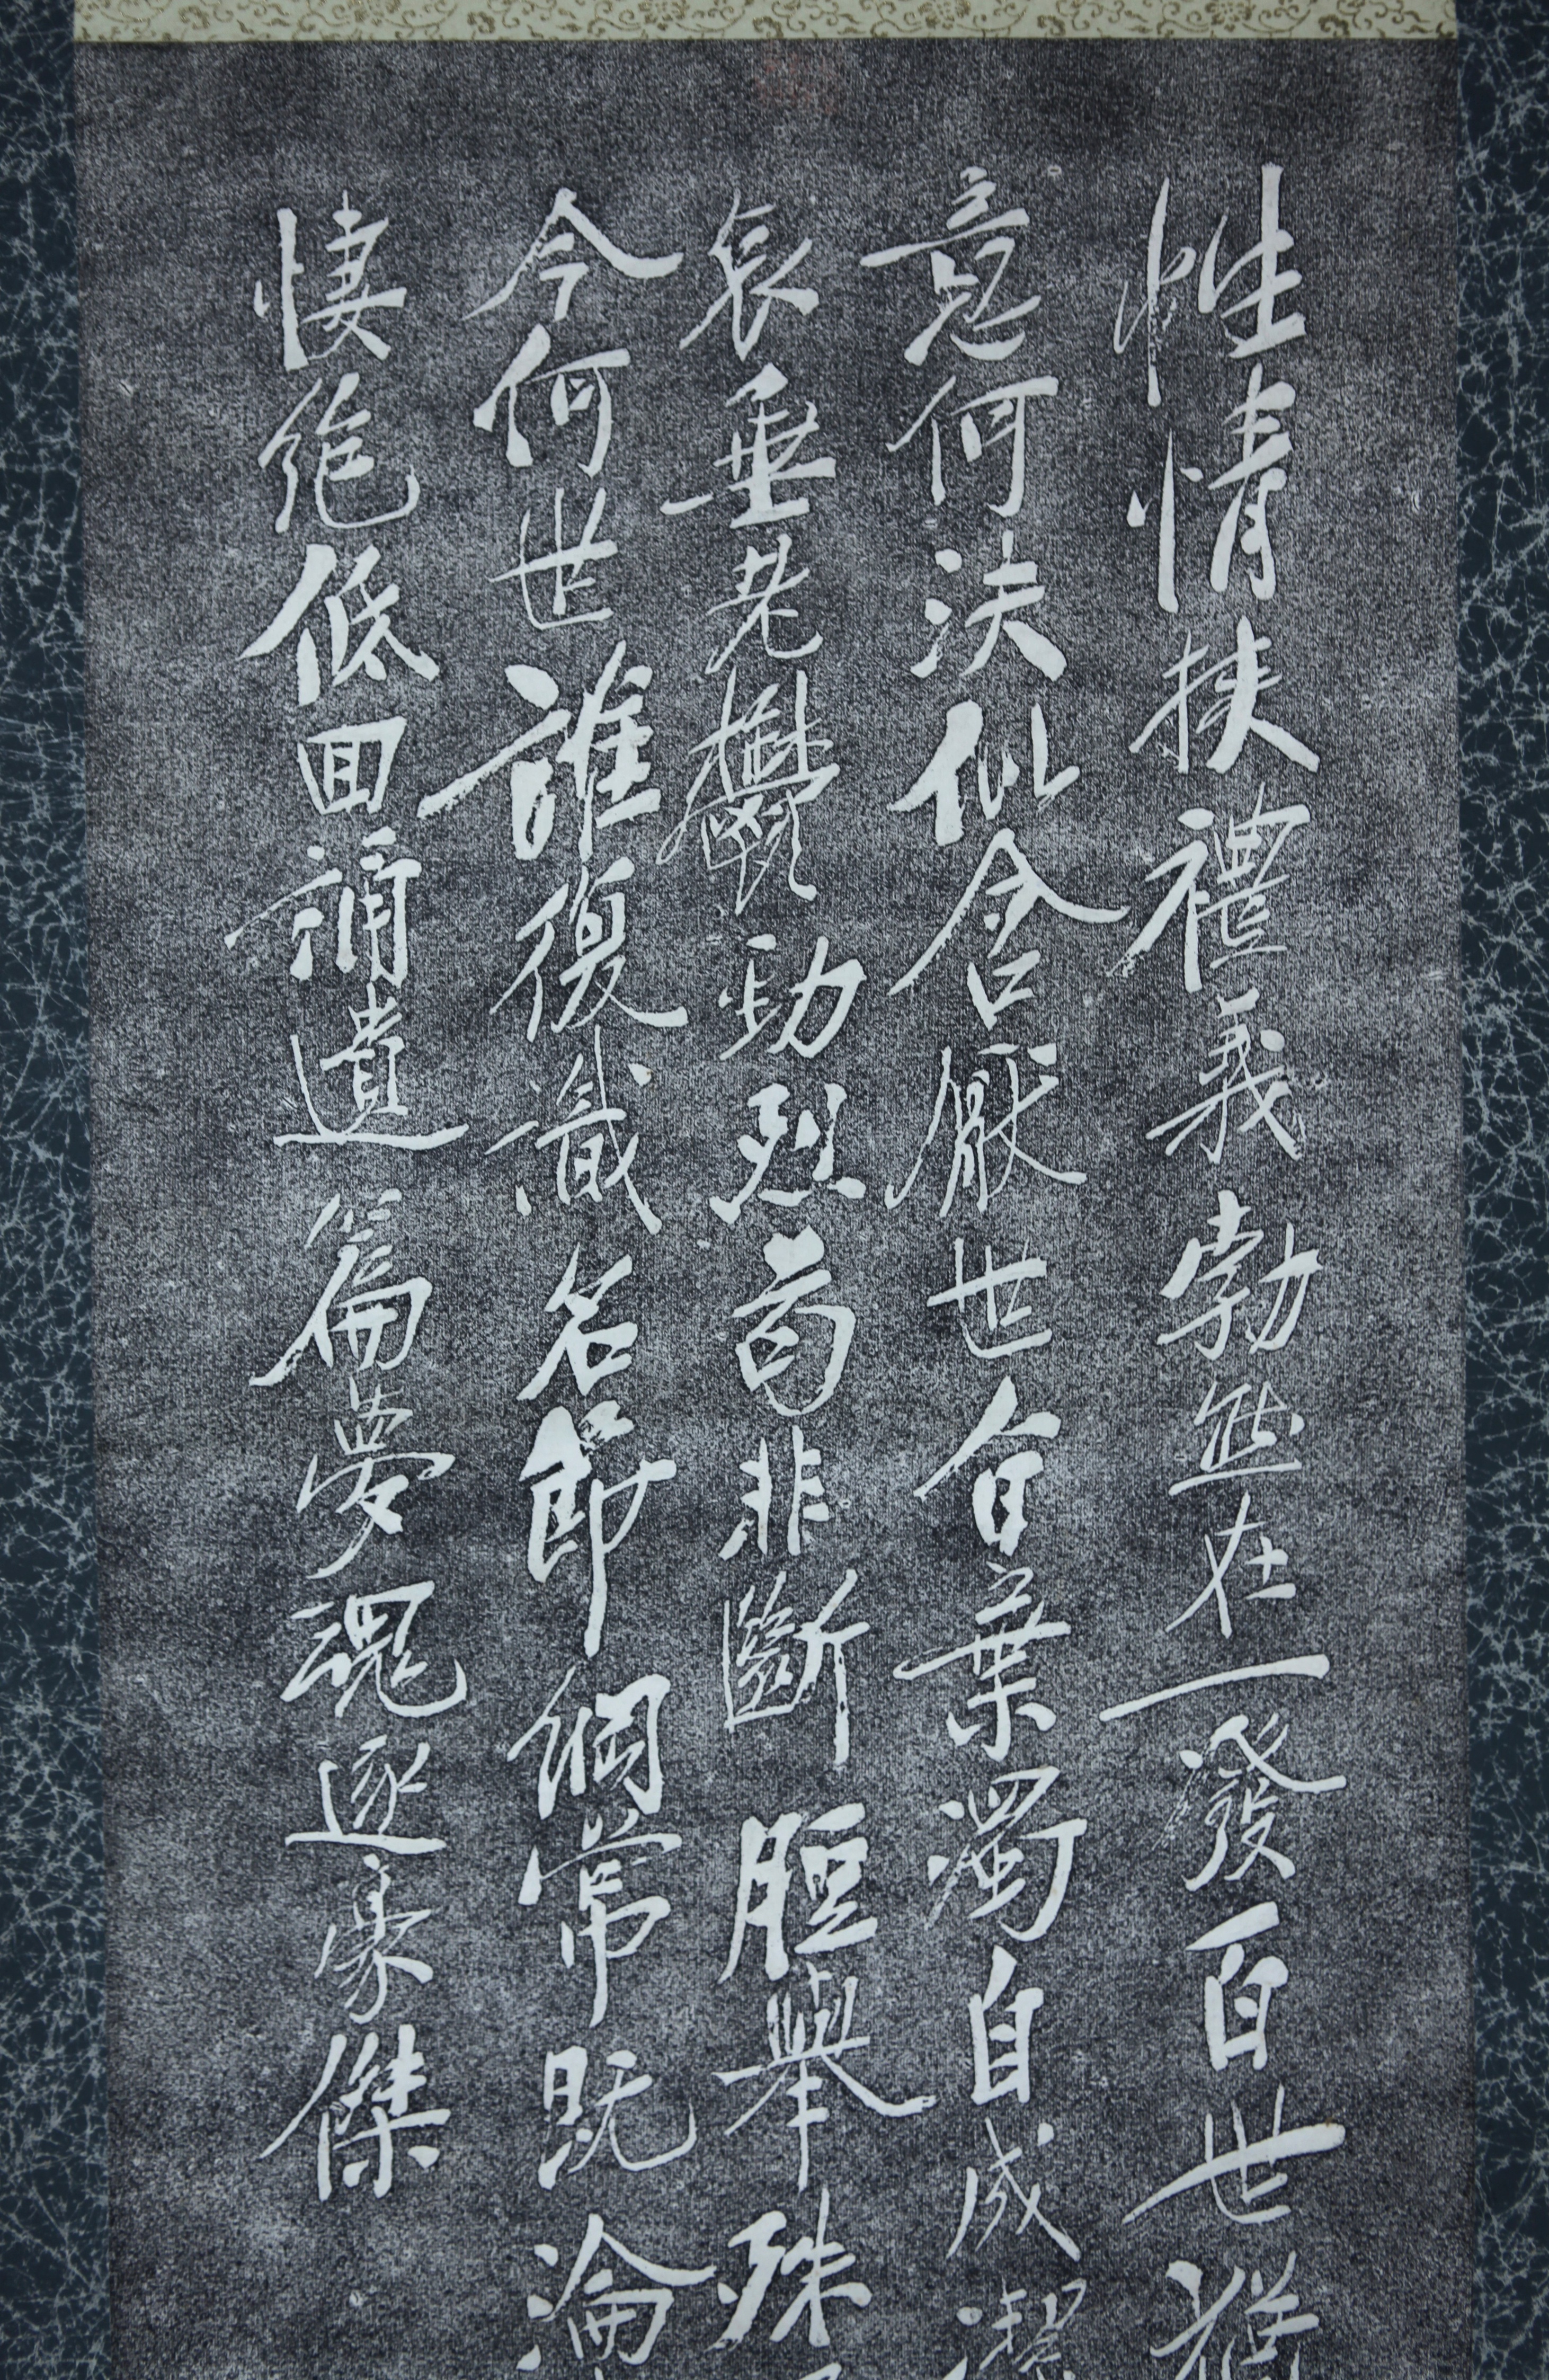 性情挾禮義勃然在一發百世猶
意何決似含厭世白棄濁自成潔
哀垂老鬱勁烈苟非斷脰舉殊
今何世誰復識名節綱常既淪
悽絕低回誦遺篇夢魂逐豪傑